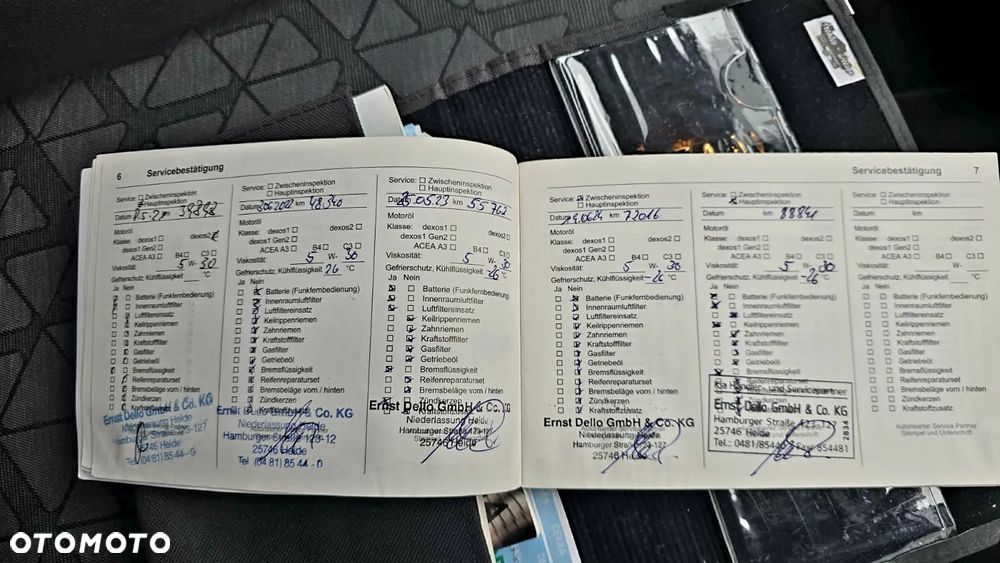 6 Servicebestätigung
Service: Zwischeninspektion
Hauptinspektion
Datum 39848
Motoröl
Klasse: dexos1 dexos2
dexos1 Gen2
ACEA A3 B4 C3
Viskosität: 5 W- 30
Gefrierschutz, Kühlflüssigkeit °C
Ja Nein
Batterie (Funkfernbedienung)
Innenraumluftfilter
Luftfiltereinsatz
Keilrippenriemen
Zahnriemen
Kraftstofffilter
Gasfilter
Getriebeöl
Bremsflüssigkeit
Reifenreparaturset
Bremsbeläge vorn / hinten
Zündkerzen
Ernst Dello GmbH & Co. KG
Niederlassung Heide
Hamburger Straße 123-127
25746 Heide
Tel (0481) 85 44 - 0
Service: Zwischeninspektion
Hauptinspektion
Datum km 48340
Motoröl
Klasse: dexos1 dexos2
dexos1 Gen2
ACEA A3 B4 C3
Viskosität: 5 W- 30
Gefrierschutz, Kühlflüssigkeit 26 °C
Ja Nein
Batterie (Funkfernbedienung)
Innenraumluftfilter
Luftfiltereinsatz
Keilrippenriemen
Zahnriemen
Kraftstofffilter
Gasfilter
Getriebeöl
Bremsflüssigkeit
Reifenreparaturset
Bremsbeläge vorn / hinten
Zündkerzen
Kraftstoffzusatz
Ernst Dello GmbH & Co. KG
Niederlassung Heide
Hamburger Straße 123-12
25746 Heide
Tel (04 81) 85 44 - 0
Service: Zwischeninspektion
Hauptinspektion
Datum 05.23 km 55762
Motoröl
Klasse: dexos1 dexos2
dexos1 Gen2
ACEA A3 B4 C3
Viskosität: 5 W- 30
Gefrierschutz, Kühlflüssigkeit -26 °C
Ja Nein
Batterie (Funkfernbedienung)
Innenraumluftfilter
Luftfiltereinsatz
Keilrippenriemen
Zahnriemen
Kraftstofffilter
Gasfilter
Getriebeöl
Bremsflüssigkeit
Reifenreparaturset
Bremsbeläge vorn / hinten
Zündkerzen
Ernst Dello GmbH & Co. KG
Niederlassung Heide
Hamburger Straße 123-127
25746 Heide
Servicebestätigung 7
Service: Zwischeninspektion
Hauptinspektion
Datum km 72016
Motoröl
Klasse: dexos1 dexos2
dexos1 Gen2
ACEA A3 B4 C3
Viskosität: 5 W- 30
Gefrierschutz, Kühlflüssigkeit -26 °C
Ja Nein
Batterie (Funkfernbedienung)
Innenraumluftfilter
Luftfiltereinsatz
Keilrippenriemen
Zahnriemen
Kraftstofffilter
Gasfilter
Getriebeöl
Bremsflüssigkeit
Reifenreparaturset
Bremsbeläge vorn / hinten
Zündkerzen
Kraftstoffzusatz
Ernst Dello GmbH & Co. KG
Niederlassung Heide
Hamburger Straße 123-127
25746 Heide
Service: Zwischeninspektion
Hauptinspektion
Datum km 88841
Motoröl
Klasse: dexos1 dexos2
dexos1 Gen2
ACEA A3 B4 C3
Viskosität: 5 W- 30
Gefrierschutz, Kühlflüssigkeit -26 °C
Ja Nein
Batterie (Funkfernbedienung)
Innenraumluftfilter
Luftfiltereinsatz
Keilrippenriemen
Zahnriemen
Kraftstofffilter
Gasfilter
Getriebeöl
Bremsflüssigkeit
Kia Händler- und Servicepartner
Ernst Dello GmbH & Co. KG
Hamburger Straße 123-127
25746 Heide
Tel.: 0481/85440 Fax: 854481
2834
Service: Zwischeninspektion
Hauptinspektion
Datum km
Motoröl
Klasse: dexos1 dexos2
dexos1 Gen2
ACEA A3 B4 C3
Viskosität: W-
Gefrierschutz, Kühlflüssigkeit °C
Ja Nein
Batterie (Funkfernbedienung)
Innenraumluftfilter
Luftfiltereinsatz
Keilrippenriemen
Zahnriemen
Kraftstofffilter
Gasfilter
Getriebeöl
Bremsflüssigkeit
Reifenreparaturset
Bremsbeläge vorn / hinten
Zündkerzen
Kraftstoffzusatz
Autorisierter Service Partner
Stempel und Unterschrift
DEKRA
OTOMOTO